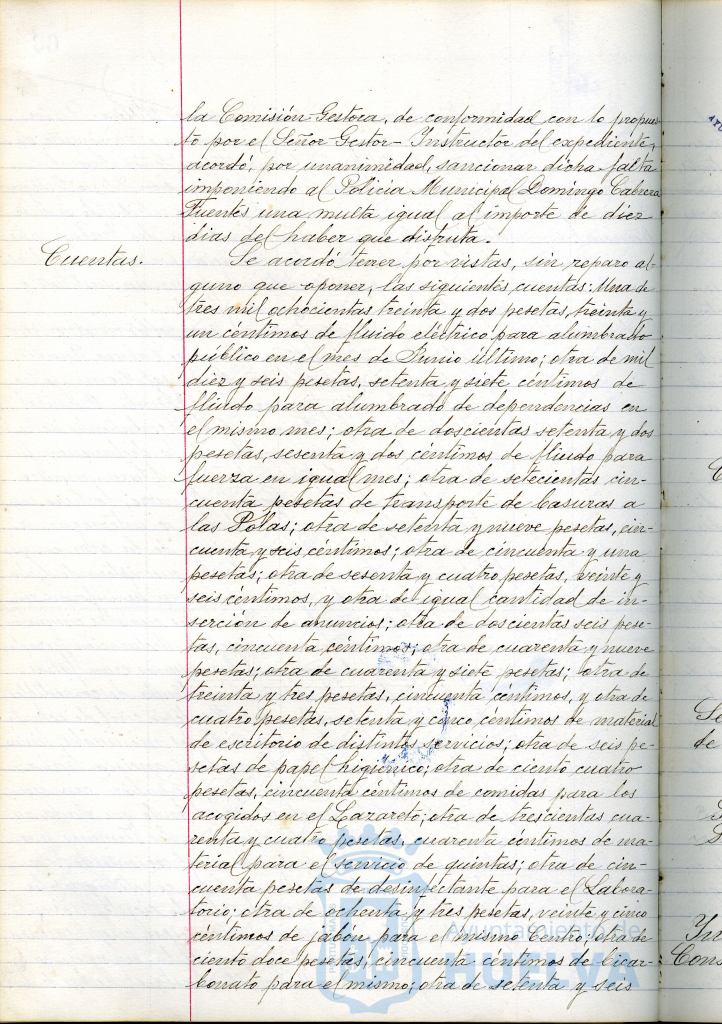 la Comisión Gestora, de conformidad con lo propues-
to por el Señor Gestor-Instructor del expediente,
acordó, por unanimidad, sancionar dicha falta
imponiendo al Policía Municipal Domingo Cabrera
Fuentes una multa igual al importe de diez
dias del haber que disfruta.
Cuentas.
Se acordó tener por vistas, sin reparo al-
guno que oponer, las siguientes cuentas: Una de
tres mil ochocientas treinta y dos pesetas, treinta y
un céntimos de fluido eléctrico para alumbrado
público en el mes de Junio último; otra de mil
diez y seis pesetas, setenta y siete céntimos de
fluido para alumbrado de dependencias en
el mismo mes; otra de doscientas setenta y dos
pesetas, sesenta y dos céntimos de fluido para
fuerza en igual mes; otra de setecientas cin-
cuenta pesetas de transporte de basuras a
las Polas; otra de setenta y nueve pesetas, cin-
cuenta y seis céntimos; otra de cincuenta y una
pesetas; otra de sesenta y cuatro pesetas, veinte y
seis céntimos, y otra de igual cantidad de in-
serción de anuncios; otra de doscientas seis pese-
tas, cincuenta céntimos; otra de cuarenta y nueve
pesetas; otra de cuarenta y siete pesetas; otra de
treinta y tres pesetas, cincuenta céntimos, y otra de
cuatro pesetas, setenta y cinco céntimos de material
de escritorio de distintos servicios; otra de seis pe-
setas de papel higiénico; otra de ciento cuatro
pesetas, cincuenta céntimos de comidas para los
acogidos en el Lazareto; otra de trescientas cua-
renta y cuatro pesetas, cuarenta céntimos de ma-
terial para el servicio de quintas; otra de cin-
cuenta pesetas de desinfectante para el Labora-
torio; otra de ochenta y tres pesetas, veinte y cinco
céntimos de jabón para el mismo Centro; otra de
ciento doce pesetas, cincuenta céntimos de bicar-
bonato para el mismo; otra de setenta y seis
Ayuntamiento de
HUELVA
de
Cons